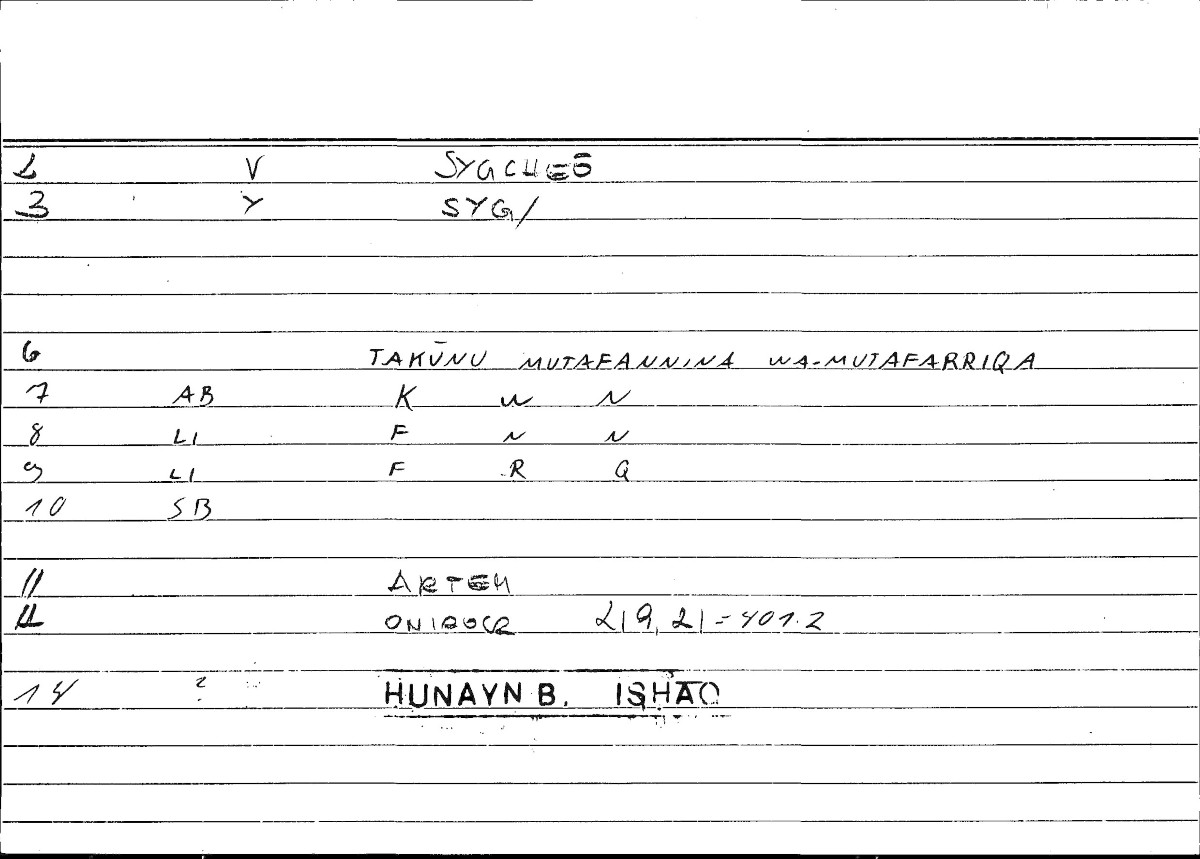 1 V SYGCHEŌ
3 Y SYG/
6 TAKŪNU MUTAFANNINA WA-MUTAFARRIQA
7 AB K W N
8 LI F N N
9 LI F R Q
10 SB
11 ARTEM
12 ONIROCR 219,21=401.2
14 ? HUNAYN B. ISḤĀQ